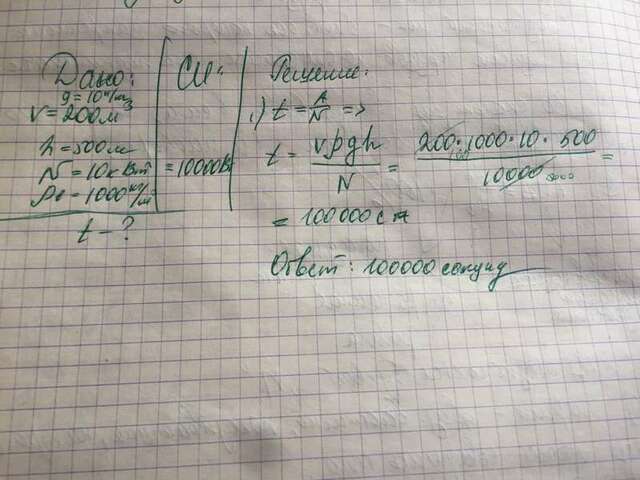 Дано:
g = 10 н/кг
V = 200 м³
h = 500 м
N = 10 кВт
ρв = 1000 кг/м³
t - ?
СИ:
= 10000 Вт
Решение:
1) t = A/N =>
t = Vρgh/N = 200·1000·10·500/10000 =
= 100000 с
Ответ: 100000 секунд